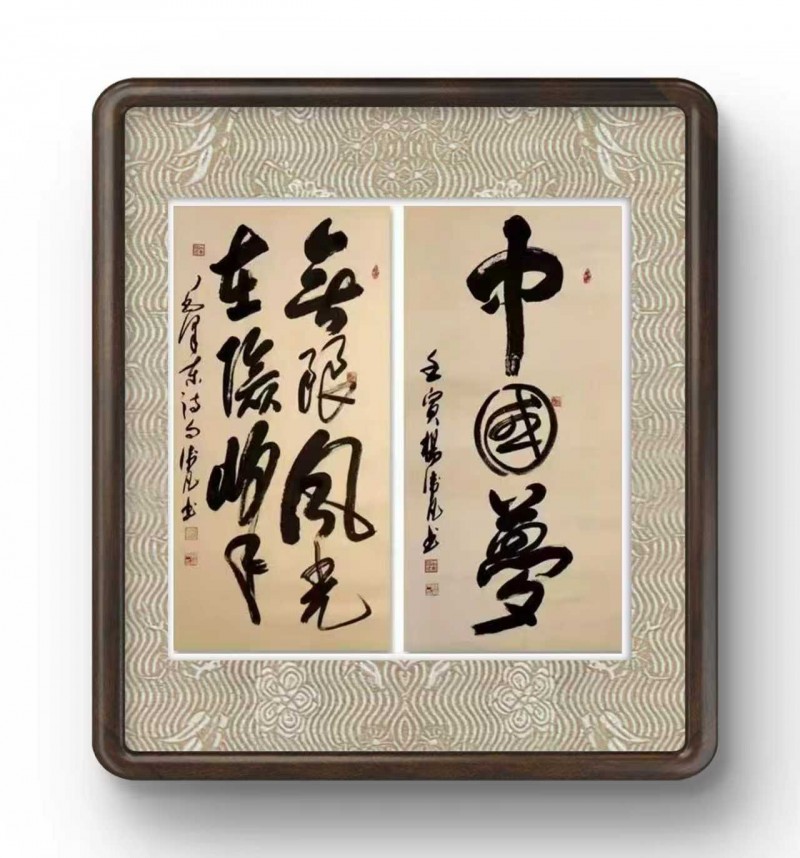 中國夢
壬寅楊
書
無限風光
在險峰
毛澤東詩句
書